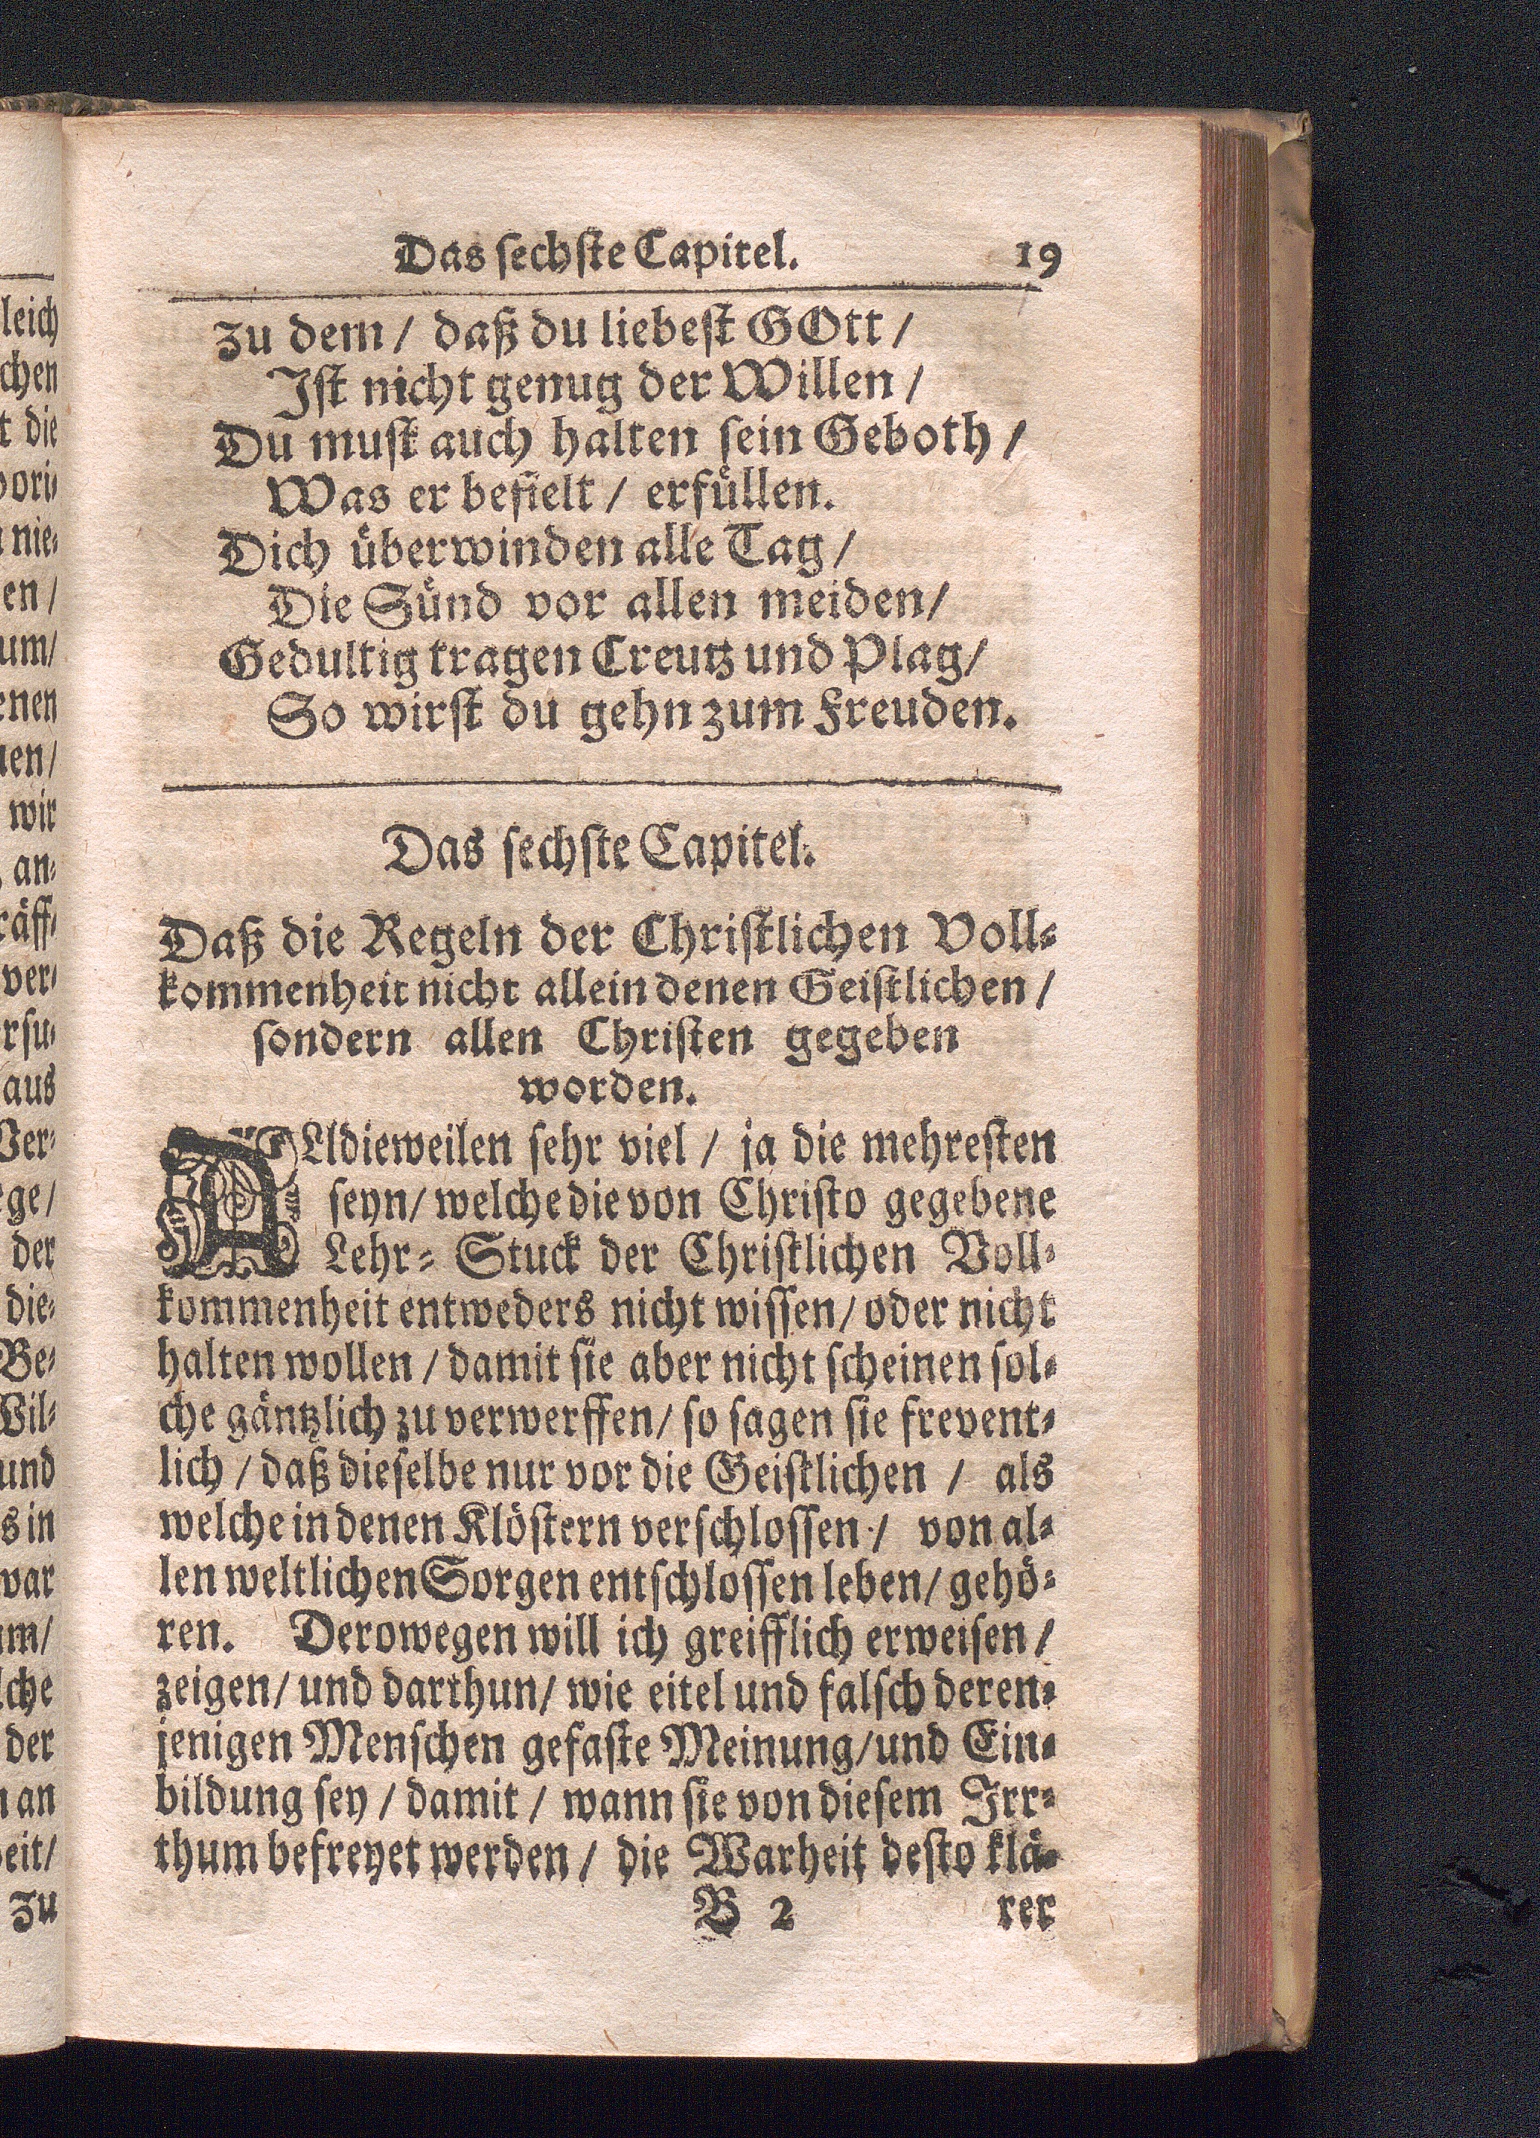 Das sechste Capitel. 19
Zu dem / daß du liebest GOtt /
Ist nicht genug der Willen /
Du must auch halten sein Geboth /
Was er befielt / erfüllen.
Dich überwinden alle Tag /
Die Sünd vor allen meiden /
Gedultig tragen Creutz und Plag /
So wirst du gehn zum Freuden.
Das sechste Capitel.
Daß die Regeln der Christlichen Voll-
kommenheit nicht allein denen Geistlichen /
sondern allen Christen gegeben
worden.
ALldieweilen sehr viel / ja die mehresten
seyn / welche die von Christo gegebene
Lehr- Stuck der Christlichen Voll-
kommenheit entweders nicht wissen / oder nicht
halten wollen / damit sie aber nicht scheinen sol-
che gäntzlich zu verwerffen / so sagen sie frevent-
lich / daß dieselbe nur vor die Geistlichen / als
welche in denen Klöstern verschlossen / von al-
len weltlichen Sorgen entschlossen leben / gehö-
ren. Derowegen will ich greifflich erweisen /
zeigen / und darthun / wie eitel und falsch deren-
jenigen Menschen gefaste Meinung / und Ein-
bildung sey / damit / wann sie von diesem Irr-
thum befreyet werden / die Warheit desto klä-
B 2 rer